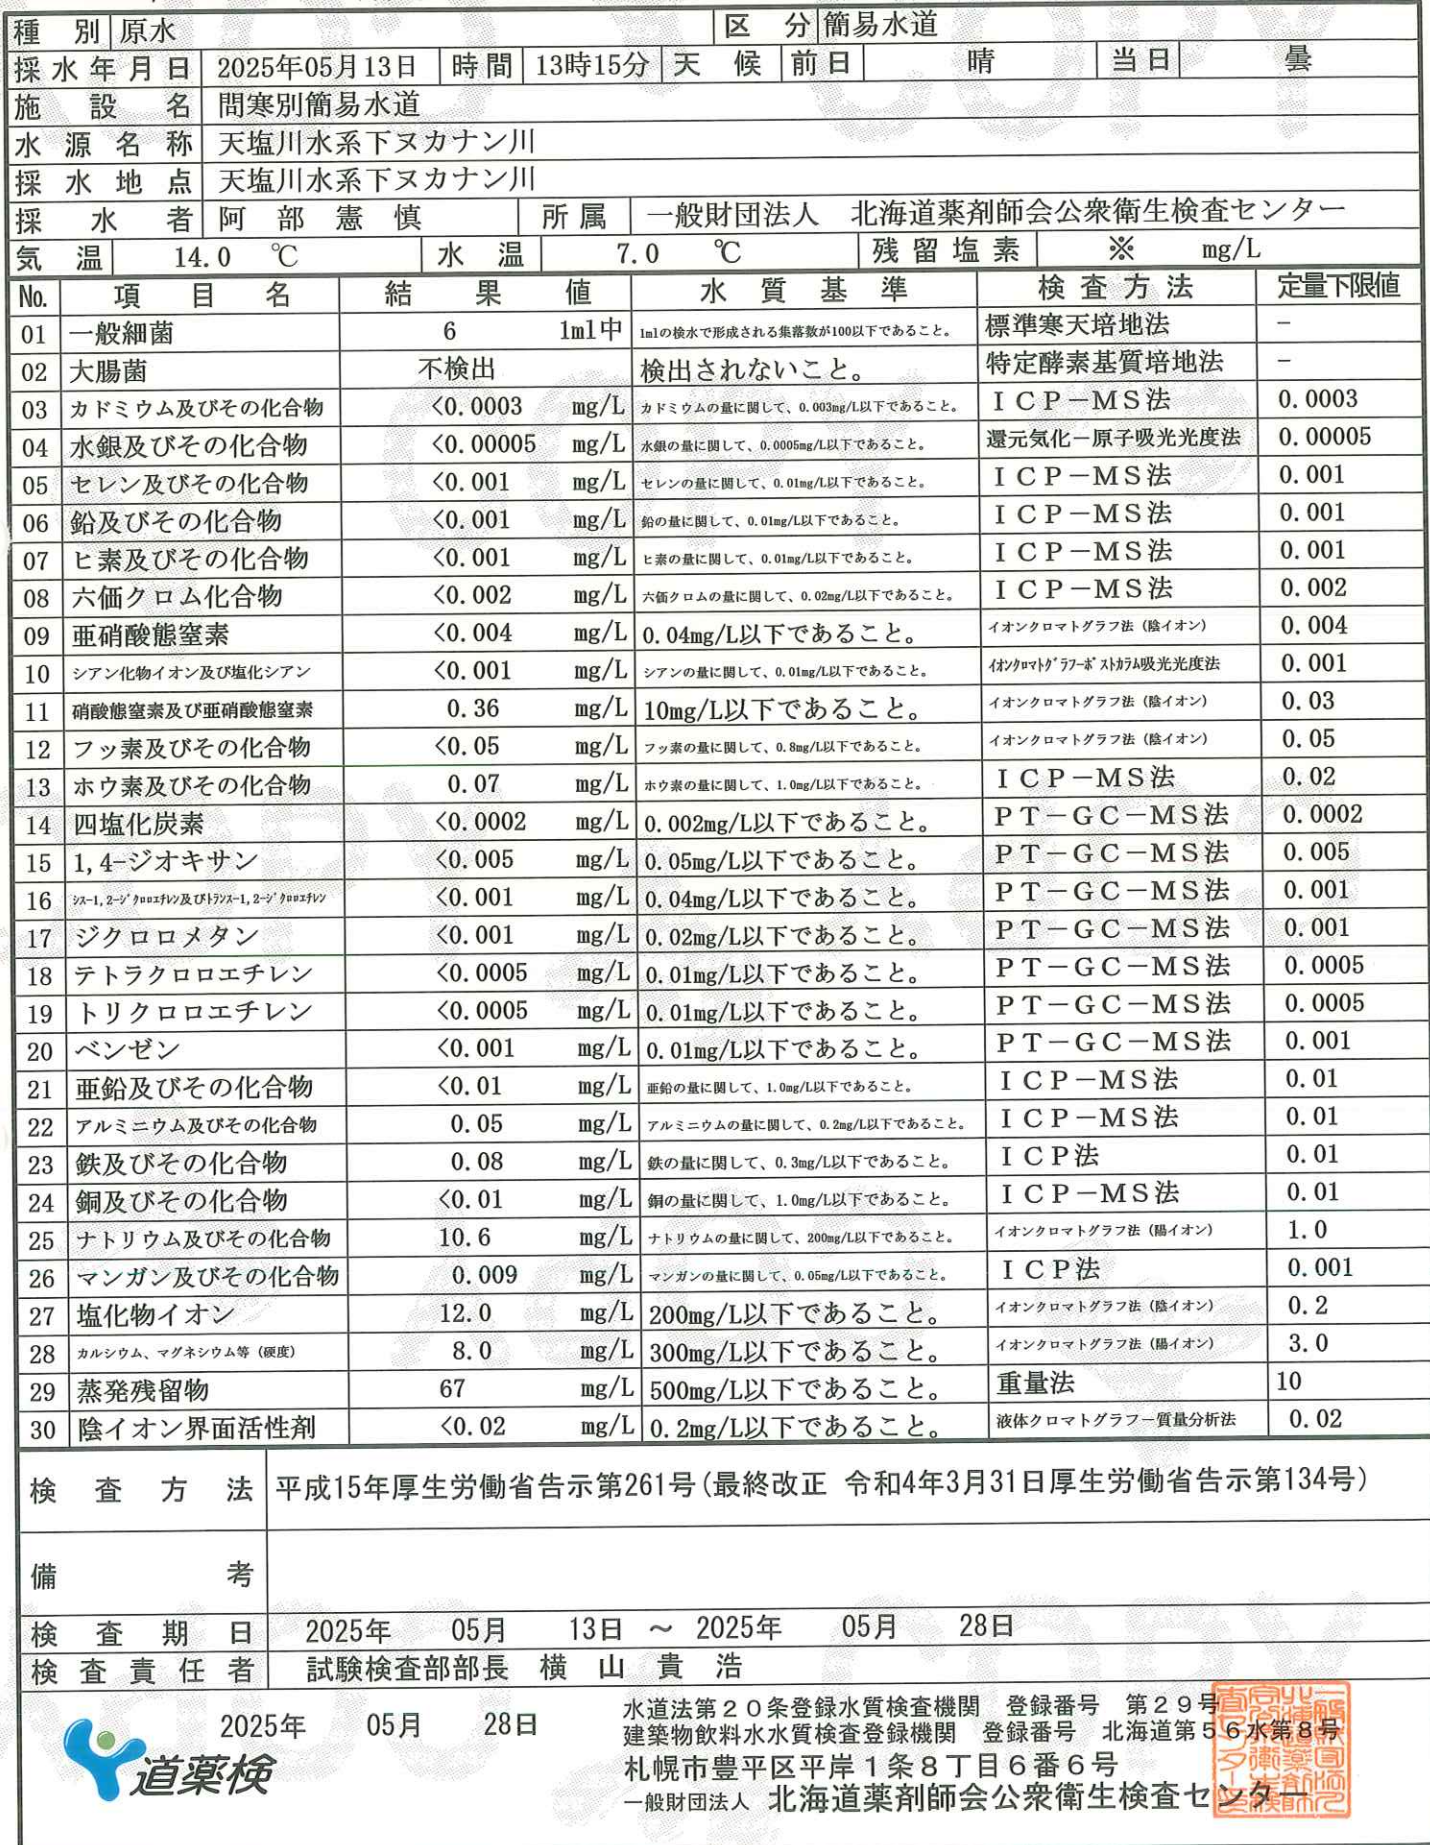 種別 原水 区分 簡易水道
採水年月日 2025年05月13日 時間 13時15分 天候 前日 晴 当日 曇
施設名 問寒別簡易水道
水源名称 天塩川水系下ヌカナン川
採水地点 天塩川水系下ヌカナン川
採水者 阿部憲慎 所属 一般財団法人 北海道薬剤師会公衆衛生検査センター
気温 14.0 ℃ 水温 7.0 ℃ 残留塩素 ※ mg/L
No. 項目名 結果値 水質基準 検査方法 定量下限値
01 一般細菌 6 1ml中 1mlの検水で形成される集落数が100以下であること。 標準寒天培地法 −
02 大腸菌 不検出 検出されないこと。 特定酵素基質培地法 −
03 カドミウム及びその化合物 <0.0003 mg/L カドミウムの量に関して、0.003mg/L以下であること。 ICP−MS法 0.0003
04 水銀及びその化合物 <0.00005 mg/L 水銀の量に関して、0.0005mg/L以下であること。 還元気化−原子吸光光度法 0.00005
05 セレン及びその化合物 <0.001 mg/L セレンの量に関して、0.01mg/L以下であること。 ICP−MS法 0.001
06 鉛及びその化合物 <0.001 mg/L 鉛の量に関して、0.01mg/L以下であること。 ICP−MS法 0.001
07 ヒ素及びその化合物 <0.001 mg/L ヒ素の量に関して、0.01mg/L以下であること。 ICP−MS法 0.001
08 六価クロム化合物 <0.002 mg/L 六価クロムの量に関して、0.02mg/L以下であること。 ICP−MS法 0.002
09 亜硝酸態窒素 <0.004 mg/L 0.04mg/L以下であること。 イオンクロマトグラフ法（陰イオン） 0.004
10 シアン化物イオン及び塩化シアン <0.001 mg/L シアンの量に関して、0.01mg/L以下であること。 ｲｵﾝｸﾛﾏﾄｸﾞﾗﾌｰﾎﾟｽﾄｶﾗﾑ吸光光度法 0.001
11 硝酸態窒素及び亜硝酸態窒素 0.36 mg/L 10mg/L以下であること。 イオンクロマトグラフ法（陰イオン） 0.03
12 フッ素及びその化合物 <0.05 mg/L フッ素の量に関して、0.8mg/L以下であること。 イオンクロマトグラフ法（陰イオン） 0.05
13 ホウ素及びその化合物 0.07 mg/L ホウ素の量に関して、1.0mg/L以下であること。 ICP−MS法 0.02
14 四塩化炭素 <0.0002 mg/L 0.002mg/L以下であること。 PT−GC−MS法 0.0002
15 1,4-ジオキサン <0.005 mg/L 0.05mg/L以下であること。 PT−GC−MS法 0.005
16 ｼｽ-1,2-ｼﾞｸﾛﾛｴﾁﾚﾝ及びﾄﾗﾝｽ-1,2-ｼﾞｸﾛﾛｴﾁﾚﾝ <0.001 mg/L 0.04mg/L以下であること。 PT−GC−MS法 0.001
17 ジクロロメタン <0.001 mg/L 0.02mg/L以下であること。 PT−GC−MS法 0.001
18 テトラクロロエチレン <0.0005 mg/L 0.01mg/L以下であること。 PT−GC−MS法 0.0005
19 トリクロロエチレン <0.0005 mg/L 0.01mg/L以下であること。 PT−GC−MS法 0.0005
20 ベンゼン <0.001 mg/L 0.01mg/L以下であること。 PT−GC−MS法 0.001
21 亜鉛及びその化合物 <0.01 mg/L 亜鉛の量に関して、1.0mg/L以下であること。 ICP−MS法 0.01
22 アルミニウム及びその化合物 0.05 mg/L アルミニウムの量に関して、0.2mg/L以下であること。 ICP−MS法 0.01
23 鉄及びその化合物 0.08 mg/L 鉄の量に関して、0.3mg/L以下であること。 ICP法 0.01
24 銅及びその化合物 <0.01 mg/L 銅の量に関して、1.0mg/L以下であること。 ICP−MS法 0.01
25 ナトリウム及びその化合物 10.6 mg/L ナトリウムの量に関して、200mg/L以下であること。 イオンクロマトグラフ法（陽イオン） 1.0
26 マンガン及びその化合物 0.009 mg/L マンガンの量に関して、0.05mg/L以下であること。 ICP法 0.001
27 塩化物イオン 12.0 mg/L 200mg/L以下であること。 イオンクロマトグラフ法（陰イオン） 0.2
28 カルシウム、マグネシウム等（硬度） 8.0 mg/L 300mg/L以下であること。 イオンクロマトグラフ法（陽イオン） 3.0
29 蒸発残留物 67 mg/L 500mg/L以下であること。 重量法 10
30 陰イオン界面活性剤 <0.02 mg/L 0.2mg/L以下であること。 液体クロマトグラフ−質量分析法 0.02
検査方法 平成15年厚生労働省告示第261号(最終改正 令和4年3月31日厚生労働省告示第134号)
備考
検査期日 2025年 05月 13日 ～ 2025年 05月 28日
検査責任者 試験検査部部長 横山貴浩
2025年 05月 28日
道薬検
水道法第20条登録水質検査機関 登録番号 第29号
建築物飲料水水質検査登録機関 登録番号 北海道第56水第8号
札幌市豊平区平岸1条8丁目6番6号
一般財団法人 北海道薬剤師会公衆衛生検査センター